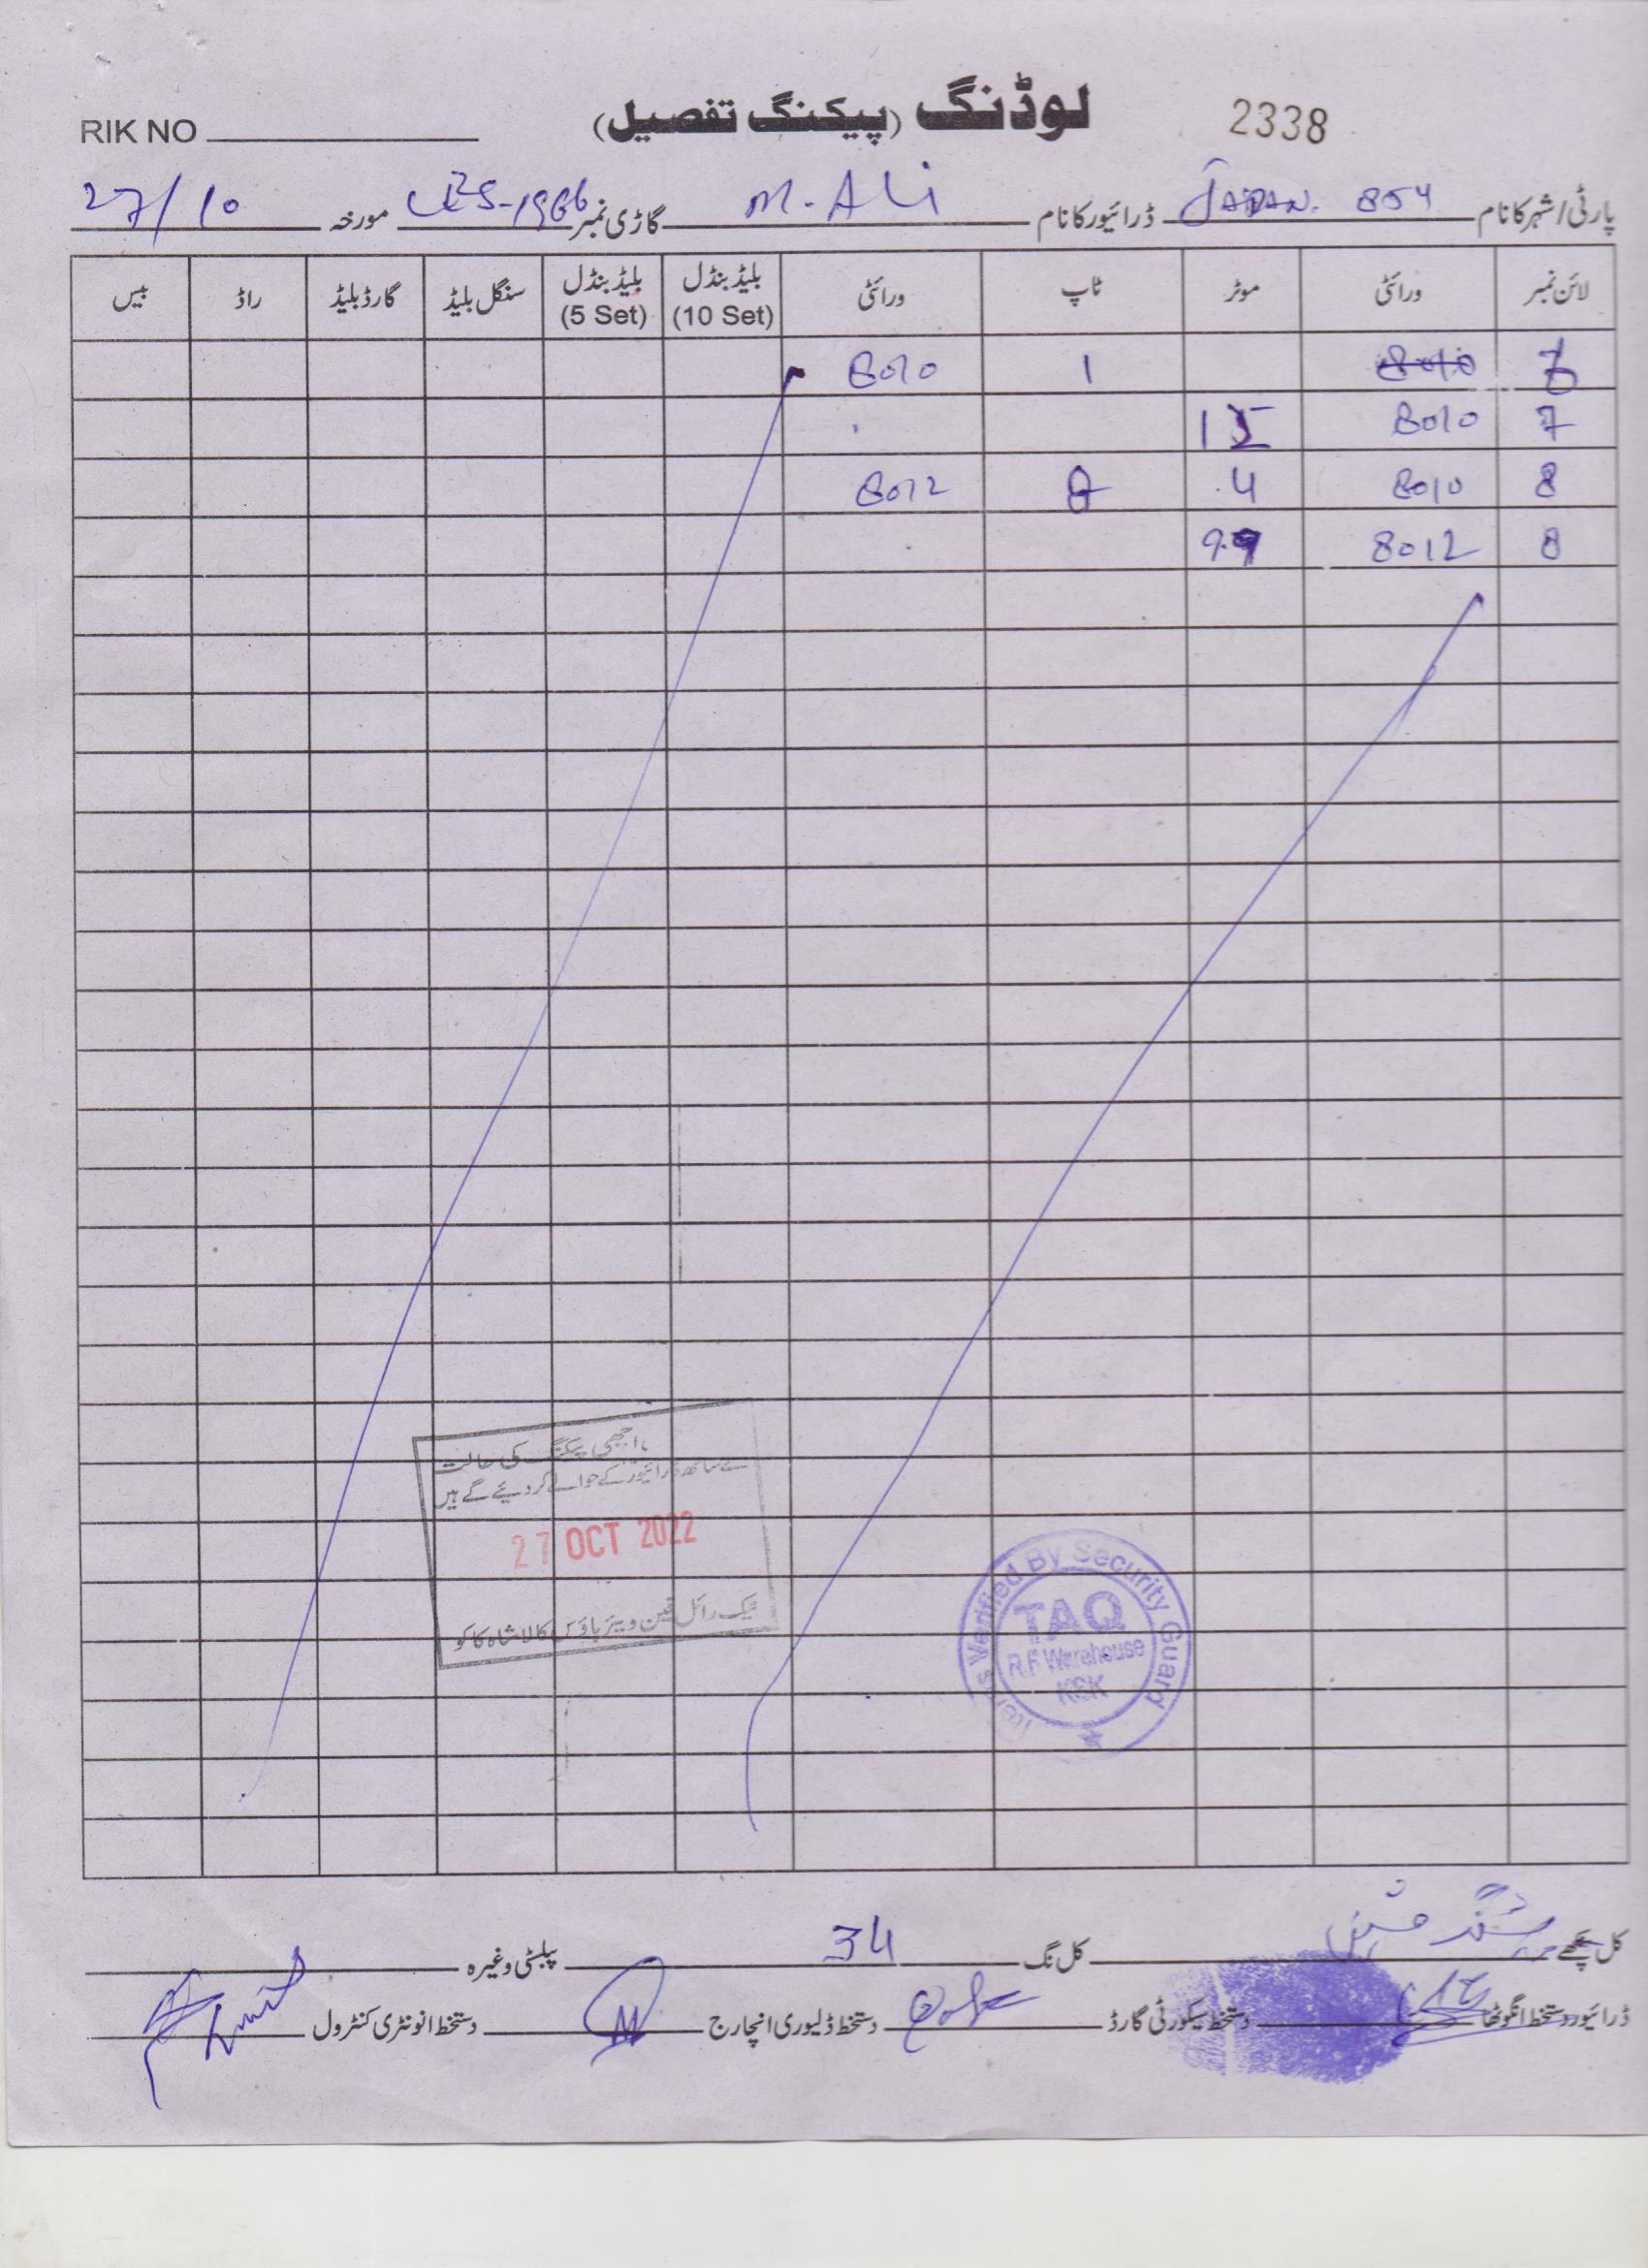 RIK NO لوڈنگ (پیکنگ تفصیل) 2338
پارٹی/شہر کا نام JAPAN. 854 ڈرائیور کا نام M. ALi گاڑی نمبر LES-1966 مورخہ 27/10
لائن نمبر ورائٹی موٹر ٹاپ ورائٹی بلیڈ بنڈل (10 Set) بلیڈ بنڈل (5 Set) سنگل بلیڈ گارڈ بلیڈ راڈ بیس
8010 1 8010
7 8010 15
8 8010 4 8 8012
8 8012
اچھی پیکنگ کی حالت
کے ساتھ ڈرائیور کے حوالے کر دیئے گے ہیں
27 OCT 2022
رائل فین ویئر ہاؤس کالا شاہ کاکو
Items Verified By Security Guard
TAQ
R.F Warehouse
KSK
کل پنکھے کل نگ 34 پبلسٹی وغیرہ
ڈرائیور دستخط انگوٹھا دستخط سیکورٹی گارڈ دستخط ڈلیوری انچارج دستخط انونٹری کنٹرول